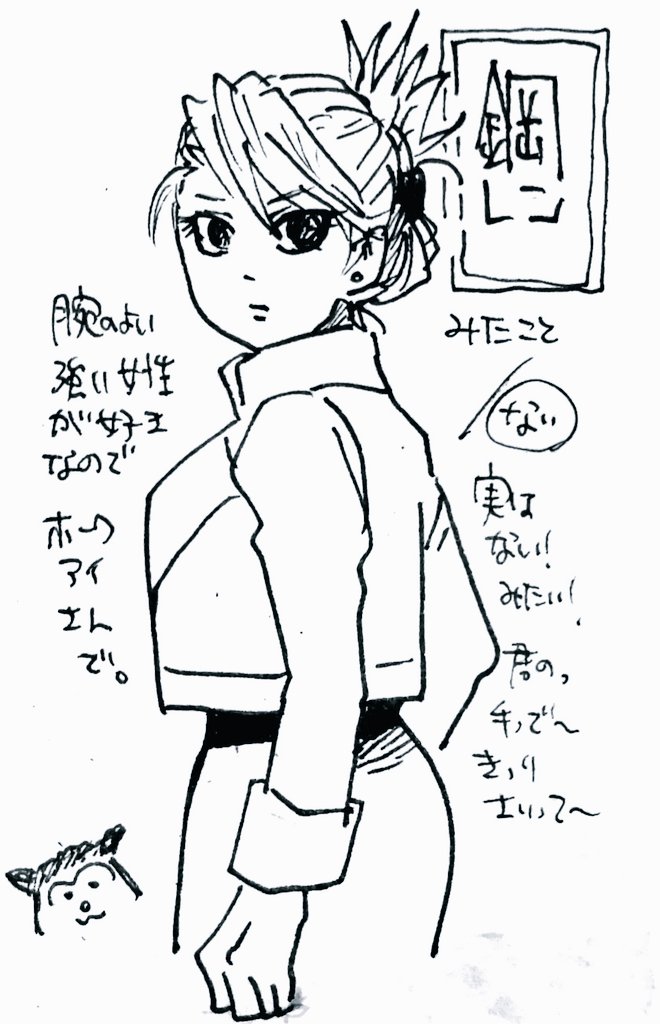 鋼
みたこと
ない
実は
ない!
みたい!
君の、
手で〜
きっり
さいって〜
腕のよい
強い女性
が好き
なので
ホーク
アイ
さん
で。